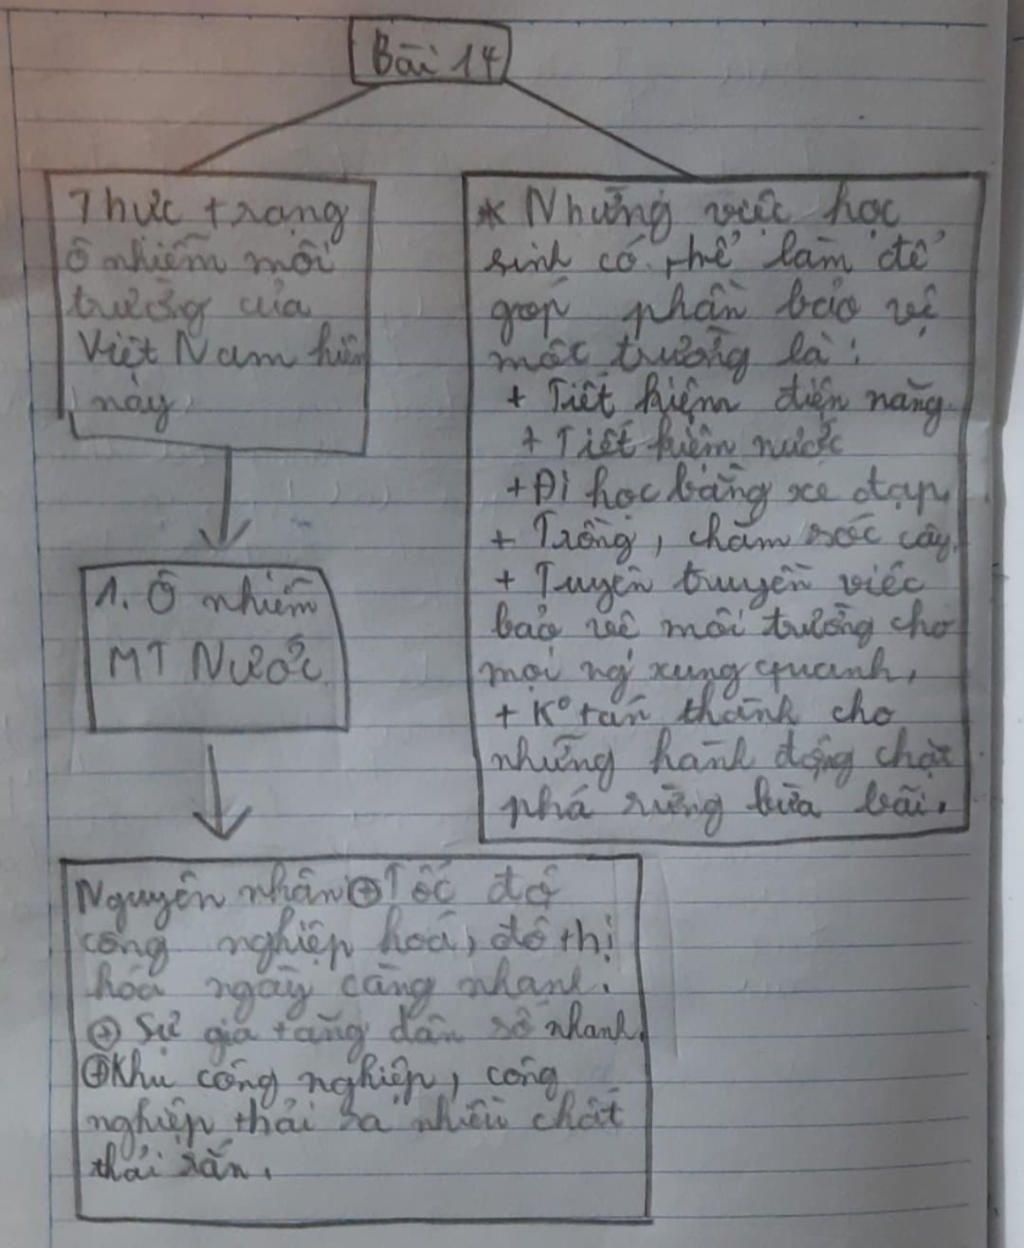 Bài 14
Thực trạng
Ô nhiễm môi
trường của
Việt Nam hiện
nay
1. Ô nhiễm
MT Nước
Nguyên nhân ⊕ Tốc độ
công nghiệp hoá, đô thị
hóa ngày càng nhanh.
⊕ Sự gia tăng dân số nhanh.
⊕ Khu công nghiệp, công
nghiệp thải ra nhiều chất
thải rắn.
* Những việc học
sinh có thể làm để
góp phần bảo vệ
môi trường là:
+ Tiết kiệm điện năng
+ Tiết kiệm nước
+ Đi học bằng xe đạp
+ Trồng, chăm sóc cây.
+ Tuyên truyền việc
bảo vệ môi trường cho
mọi ng' xung quanh,
+ K° tán thành cho
những hành động chặt
phá rừng bừa bãi.